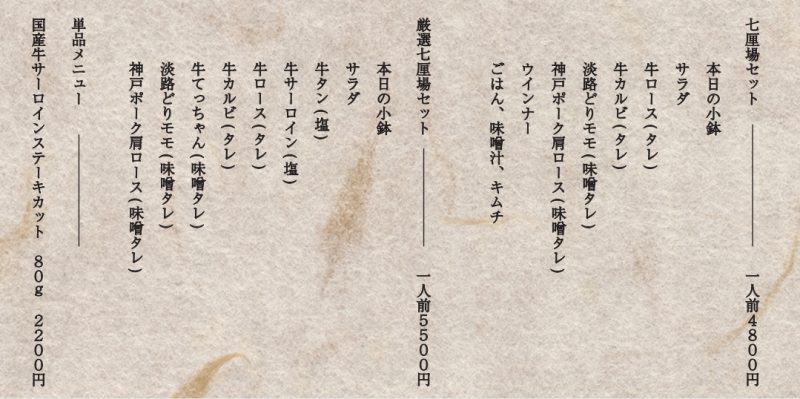 七厘場セット ――― 一人前4800円
本日の小鉢
サラダ
牛ロース(タレ)
牛カルビ(タレ)
淡路どりモモ(味噌タレ)
神戸ポーク肩ロース(味噌タレ)
ウインナー
ごはん、味噌汁、キムチ
厳選七厘場セット ――― 一人前5500円
本日の小鉢
サラダ
牛タン(塩)
牛サーロイン(塩)
牛ロース(タレ)
牛カルビ(タレ)
牛てっちゃん(味噌タレ)
淡路どりモモ(味噌タレ)
神戸ポーク肩ロース(味噌タレ)
単品メニュー ―――
国産牛サーロインステーキカット 80g 2200円